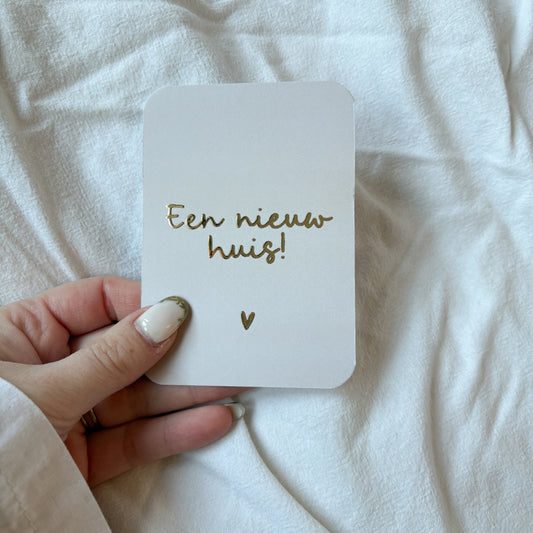 Een nieuw
huis!